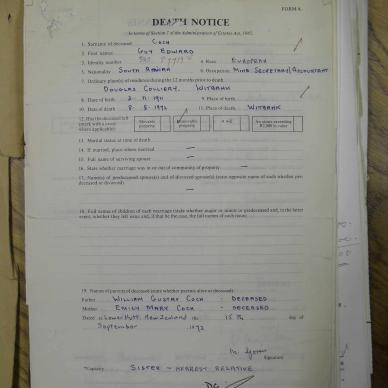 FORM A.
DEATH NOTICE
In terms of Section 7 of the Administration of Estates Act, 1965.
1. Surname of deceased COCH
2. First names GUY EDWARD
3. Identity number 4. Race EUROPEAN
5. Nationality SOUTH AFRICAN 6. Occupation MINE SECRETARY/ACCOUNTANT
7. Ordinary place(s) of residence during the 12 months prior to death
DOUGLAS COLLIERY, WITBANK
8. Date of birth 2.11.1911 9. Place of birth
10. Date of death 8.8.1972 11. Place of death WITBANK
12. Has the deceased left (mark with a cross where applicable) Movable property Immovable property A will
13. Marital status at time of death
14. If married, place where married —
15. Full name of surviving spouse —
16. State whether marriage was in or out of community of property
17. Name(s) of predeceased spouse(s) and of divorced spouse(s) (state opposite name of each whether predeceased or divorced)
—
18. Full names of children of each marriage (state whether major or minor or predeceased and, in the latter event, whether they left issue and, if that be the case, the full names of such issue)
19. Names of parents of deceased (state whether parents alive or deceased):
Father WILLIAM GUSTAV COCH - DECEASED
Mother EMILY MARY COCH - DECEASED
Dated at Lower Hutt, New Zealand 15th day of
September 1972
Signature
*Capacity SISTER - NEAREST RELATIVE